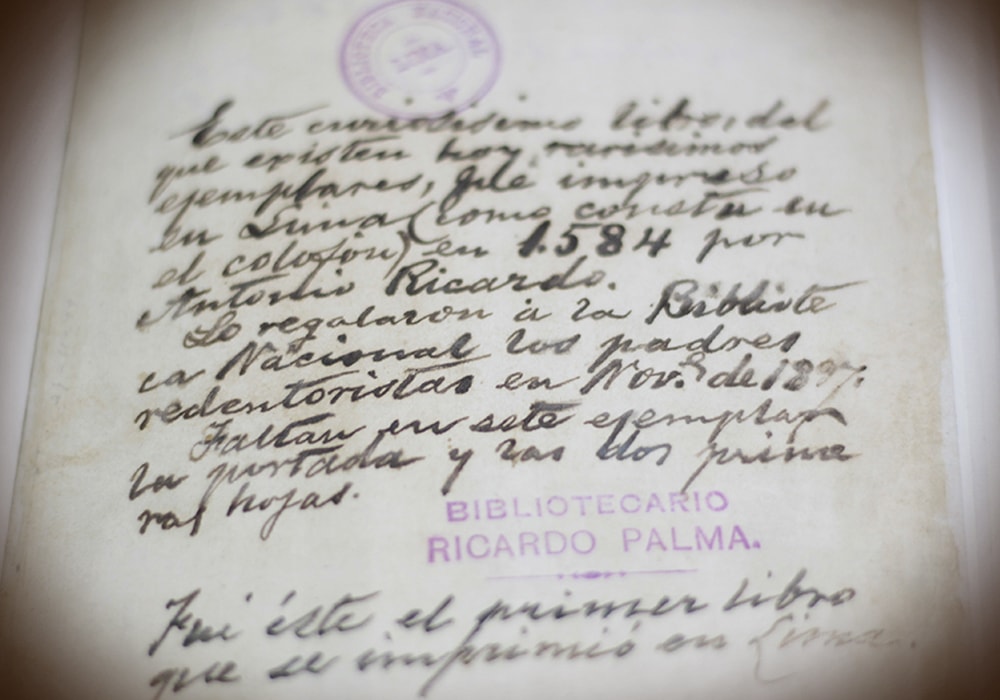 BIBLIOTECA NACIONAL
LIMA
Este curiosisimo libro, del
que existen hoy rarisimos
ejemplares, fué impreso
en Lima (como consta en
el colofón) en 1.584 por
Antonio Ricardo.
Lo regalaron á la Bibliote
ca Nacional los padres
redentoristas en Nov.e de 1897.
Faltan en este ejemplar
la portada y las dos prime
ras hojas.
BIBLIOTECARIO
RICARDO PALMA.
Fué éste el primer libro
que se imprimió en Lima.